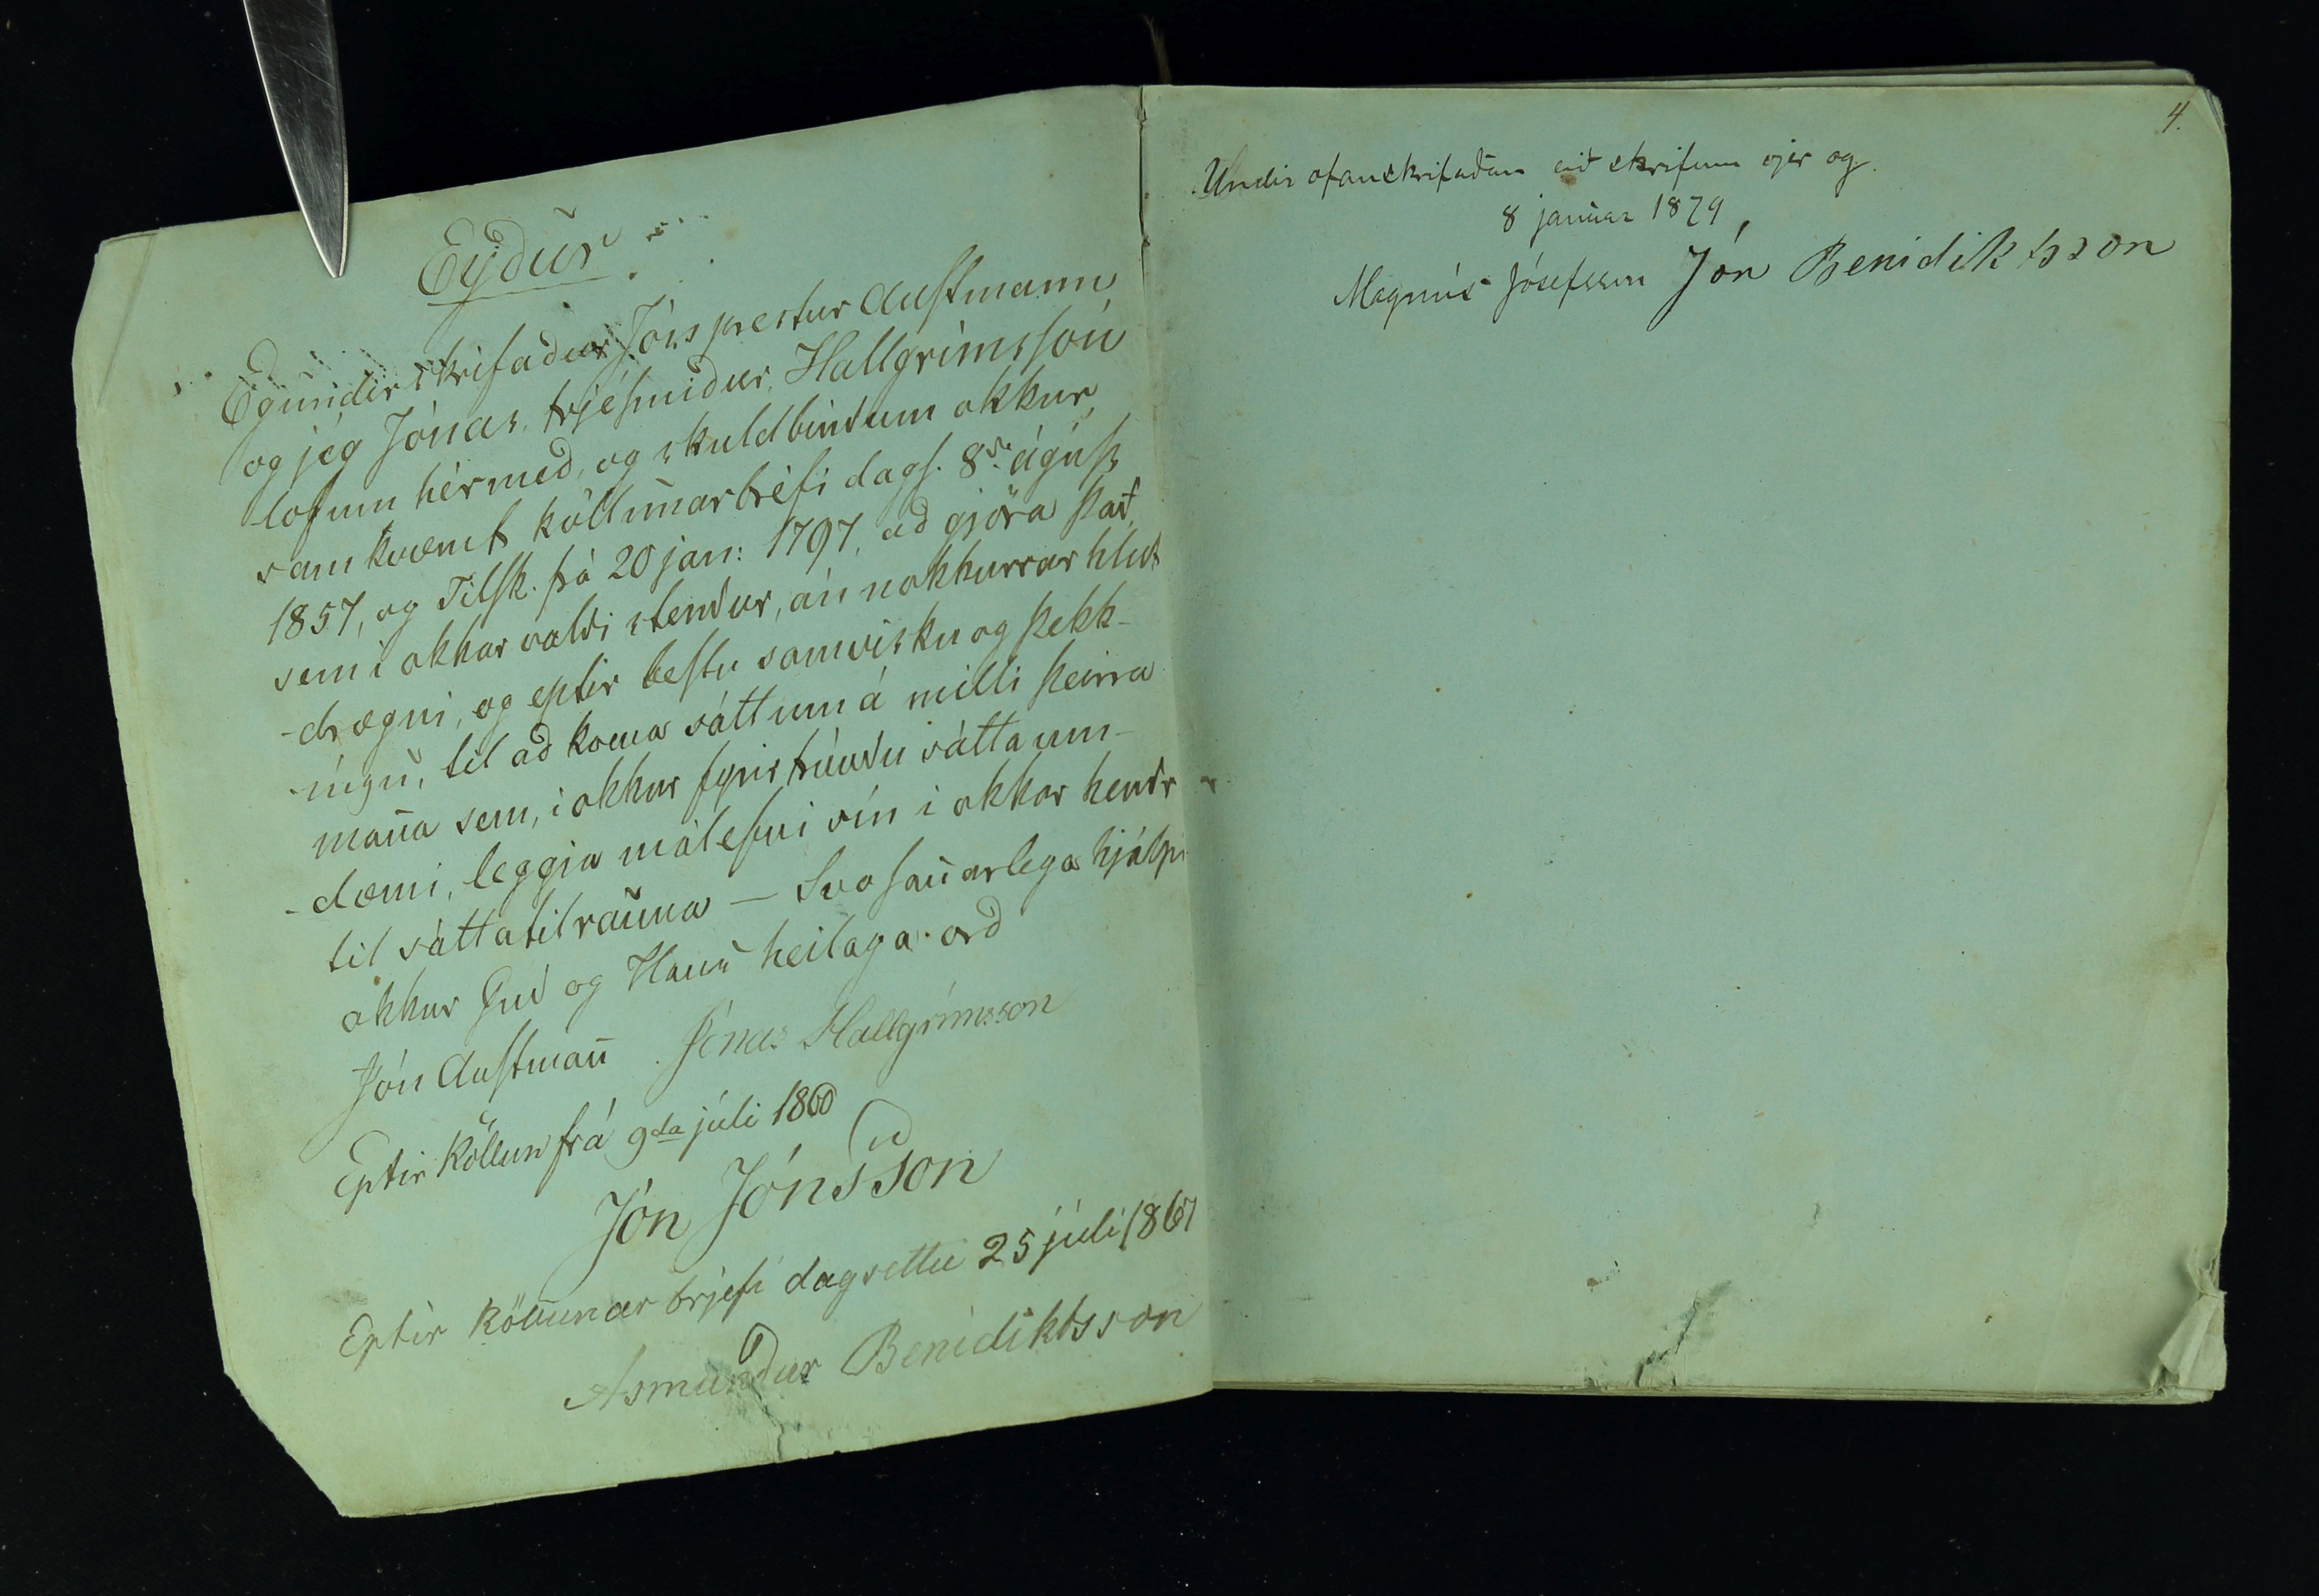 Eyður
Eg undirskrifadur Jón prestur Austmann
og jég Jónas trjésmidur Hallgrímsson
lofum hérmed, og skuldbindum okkur,
samkvæmt köllunarbréfi dags. 8da águst
1857, og Tilsk. frá 20 jan: 1797, ad gjöra það
sem í okkar valdi stendur, án nokkurrar hlut
-drægni, og eptir bestu samvisku og þekk-
-íngu, til ad koma sáttum á milli þeirra
mana sem, í okkur fyrir trúudu sátta um-
-dæmi, leggja málefni sín í okkar hendr
til sáttatilrauna — Svo sanarlega hjálpi
okkur Gud og Hans heilaga ord
Jón Austman Jónas Hallgrímsson
Eptir köllun frá 9da júli 1860
Jón Jónsson
Eptir köllunar brjefi dagsettu 25 júli 1867
Asmundur Benidiktsson
4.
Undir ofanskrifaðan eið skrifum vjer og
8 januar 1879,
Magnús Jósefsson Jón Benidiktsson